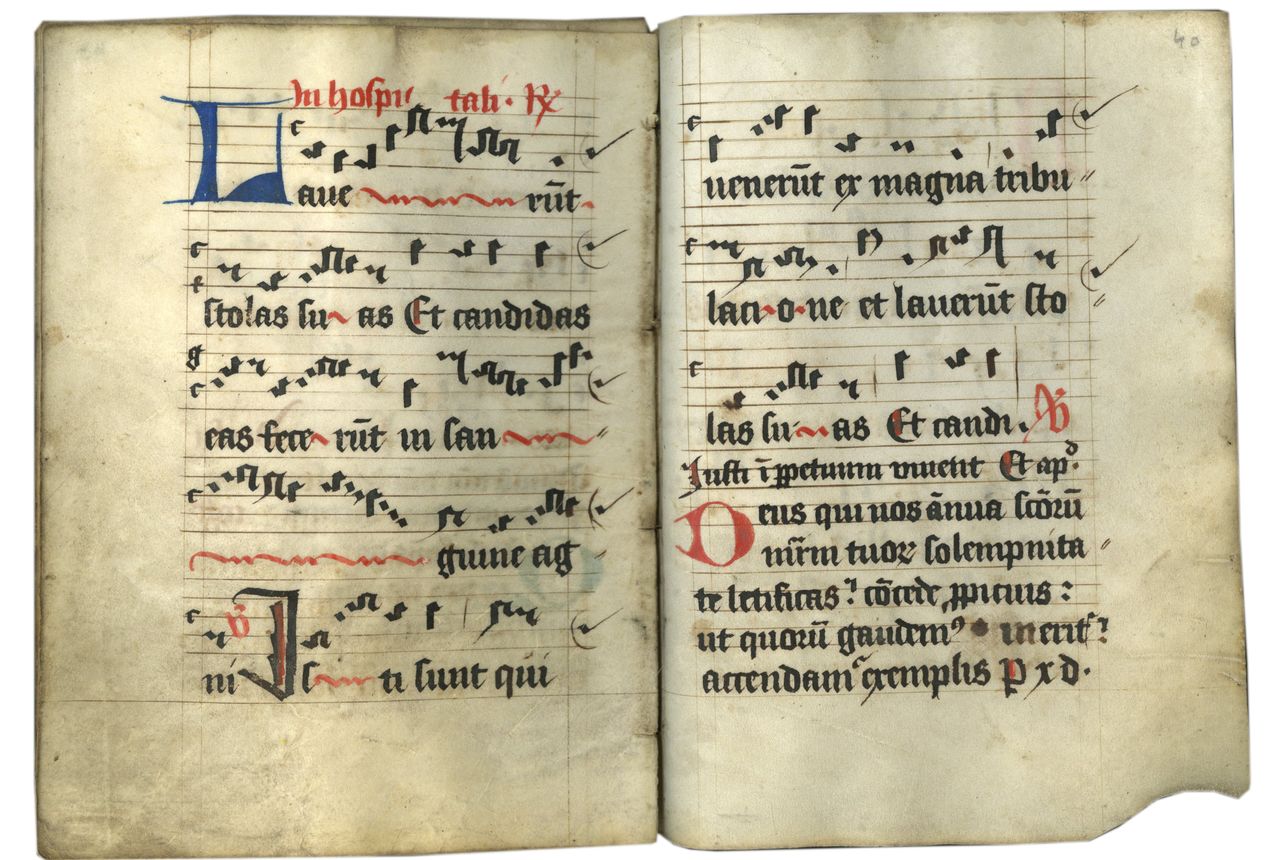 In hospitali. R
Lauerūt
stolas suas Et candidas
eas fecerūt in san
guine ag
ni V Isti sunt qui
40
uenerūt ex magna tribu
lacione et lauerūt sto
las suas Et candi. V
Justi ī ꝑpetuum viuent Et apᵈ.
Deus qui nos ānua scōrū
mr̄m tuoꝝ solempnita
te letificas? cōcede ꝓpicius:
ut quorū gaudemꝰ meritꝭ?
accendamᷣ exemplis P x d.